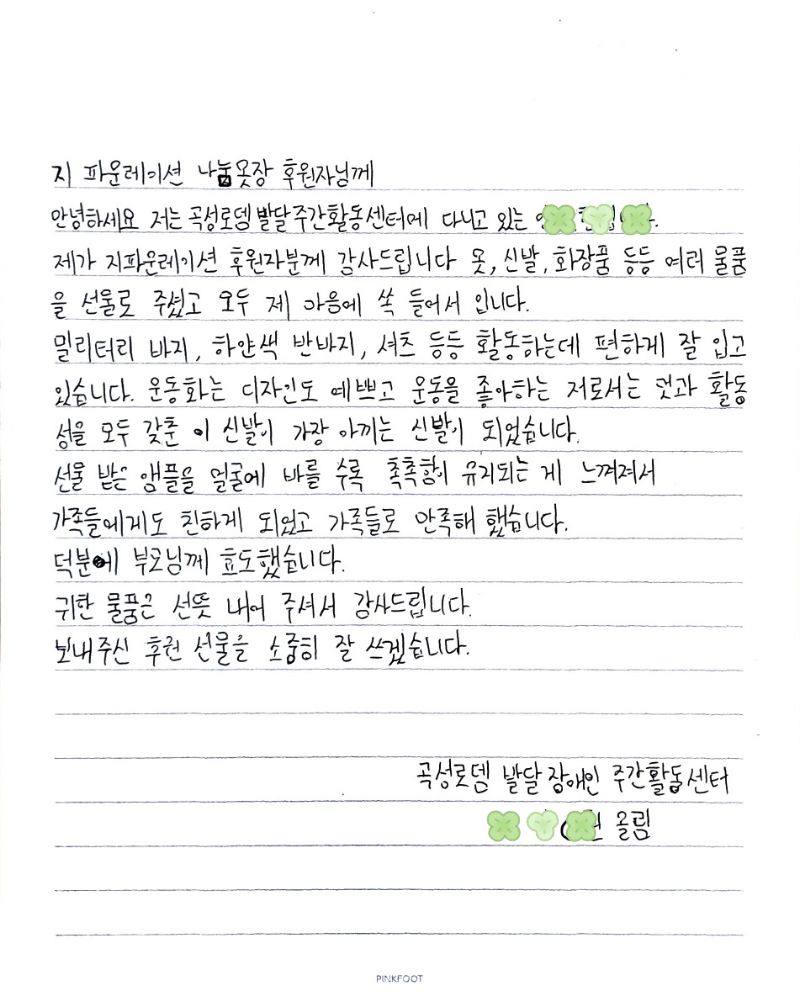 지 파운레이션 나눔옷장 후원자님께
안녕하세요 저는 곡성로뎀발달주간활동센터에 다니고 있는
제가 지파운레이션 후원자분께 감사드립니다 옷, 신발, 화장품 등등 여러 물품
을 선물로 주셨고 모두 제 마음에 쏙 들어서 입니다.
밀리터리 바지, 하얀색 반바지, 셔츠 등등 활동하는데 편하게 잘 입고
있습니다. 운동화는 디자인도 예쁘고 운동을 좋아하는 저로서는 멋과 활동
성을 모두 갖춘 이 신발이 가장 아끼는 신발이 되었습니다.
선물 받은 앰플을 얼굴에 바를 수록 촉촉함이 유지되는 게 느껴져서
가족들에게도 친하게 되었고 가족들로 만족해 했습니다.
덕분에 부모님께 효도했습니다.
귀한 물품은 선뜻 내어 주셔서 감사드립니다.
보내주신 후원 선물을 소중히 잘 쓰겠습니다.
곡성로뎀 발달장애인 주간활동센터
올림
PINKFOOT